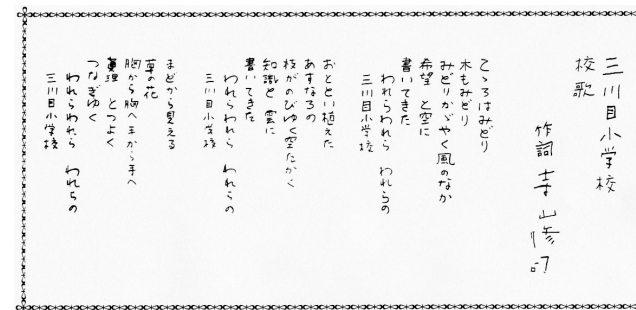 三川目小学校
校歌
作詞 寺山修司
こゝろはみどり
木もみどり
みどりかゞやく風のなか
希望 と空に
書いてきた
われらわれら われらの
三川目小学校
おとゝい植えた
あすなろの
枝がのびゆく空たかく
知識と 雲に
書いてきた
われらわれら われらの
三川目小学校
まどから見える
草の花
胸から胸へ手から手へ
真理 とつよく
つなぎゆく
われらわれら われらの
三川目小学校